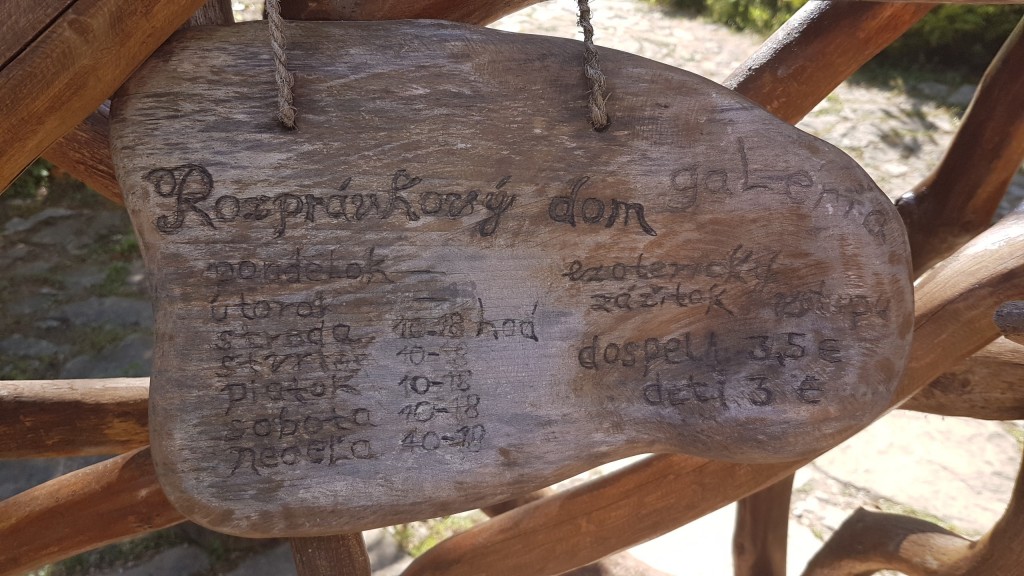 Rozprávkový dom galéria
pondelok —
útorok —
streda 10-18 hod
štvrtok 10-18
piatok 10-18
sobota 10-18
nedeľa 10-18
ezoterický
zážitok
dospelí 3,5 €
deti 3 €